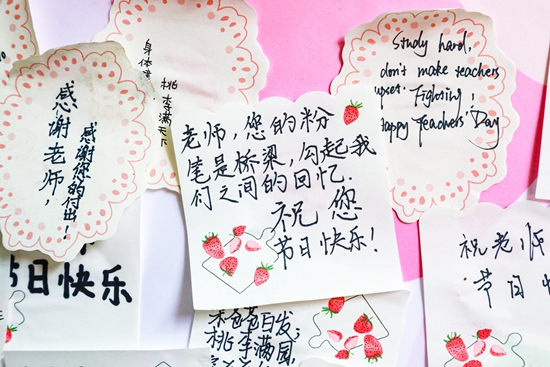 感谢老师，
感谢您的付出！
身体
桃李满天下
Study hard,
don't make teachers
upset. Fighting!
Happy Teachers' Day
老师，您的粉
笔是桥梁，勾起我
们之间的回忆.
祝您
节日快乐！
日快乐
苍苍白发；
桃李满园，
祝老师
节日快